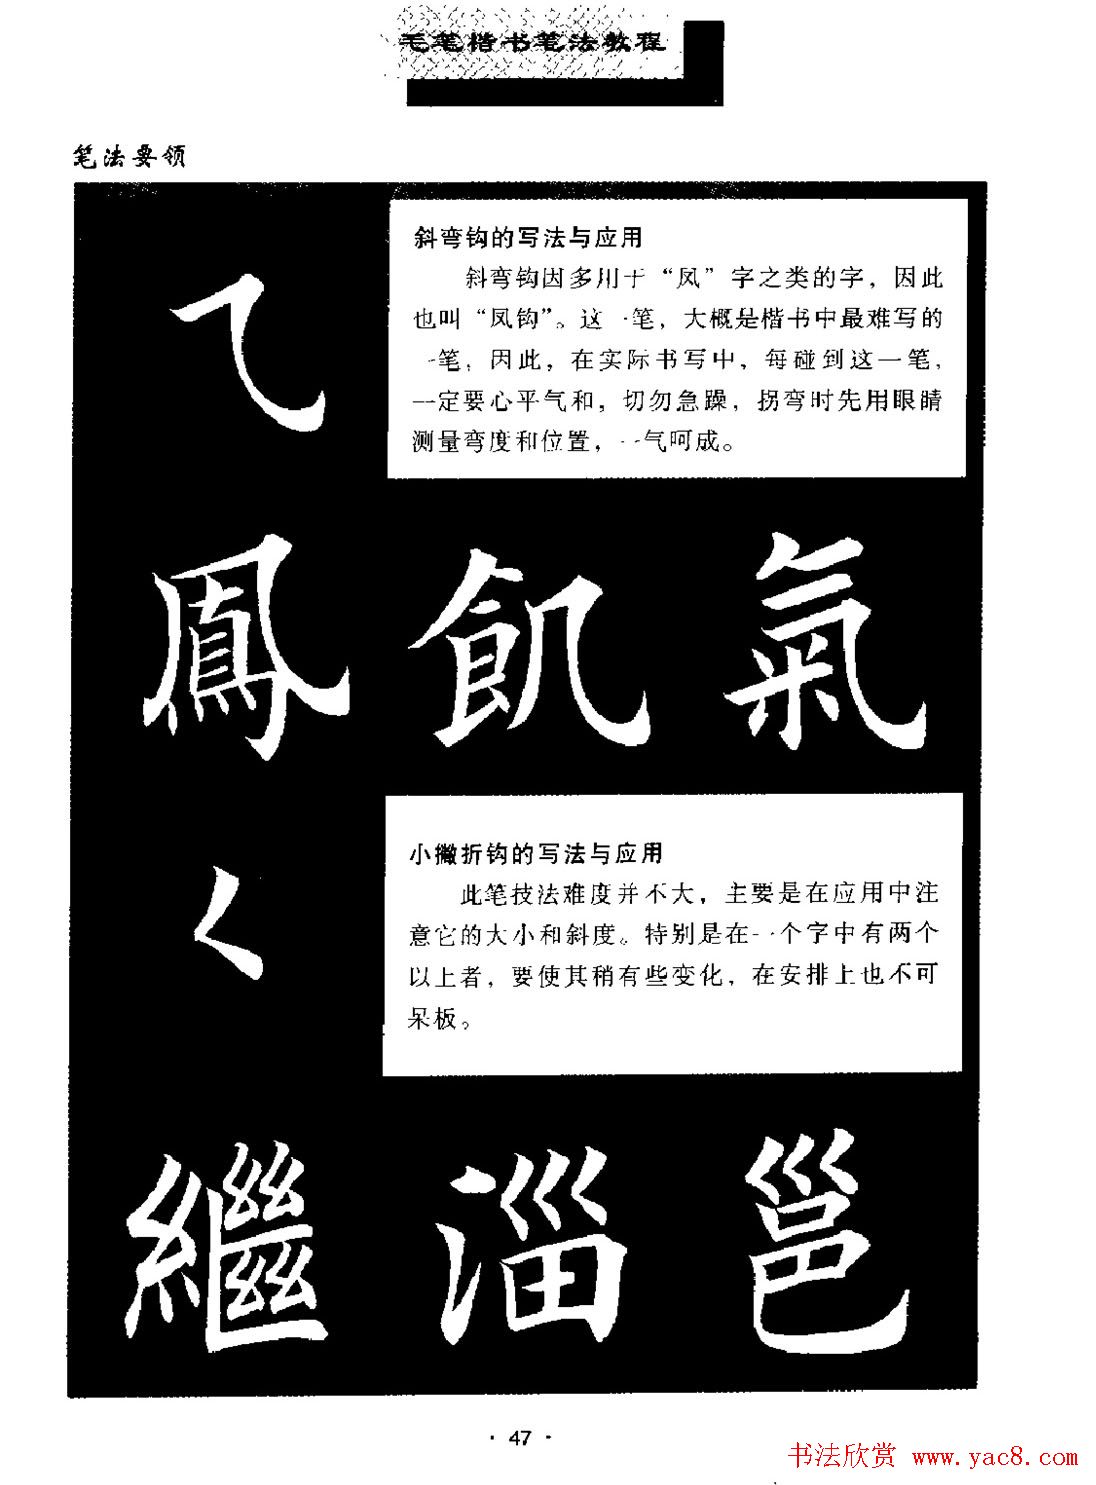 毛笔楷书笔法教程
笔法要领
斜弯钩的写法与应用
斜弯钩因多用于“凤”字之类的字，因此
也叫“凤钩”。这一笔，大概是楷书中最难写的
一笔，因此，在实际书写中，每碰到这一笔，
一定要心平气和，切勿急躁，拐弯时先用眼睛
测量弯度和位置，一气呵成。
鳳 飢 氣
小撇折钩的写法与应用
此笔技法难度并不大，主要是在应用中注
意它的大小和斜度。特别是在一个字中有两个
以上者，要使其稍有些变化，在安排上也不可
呆板。
繼 淄 邕
· 47 ·
书法欣赏 www.yac8.com